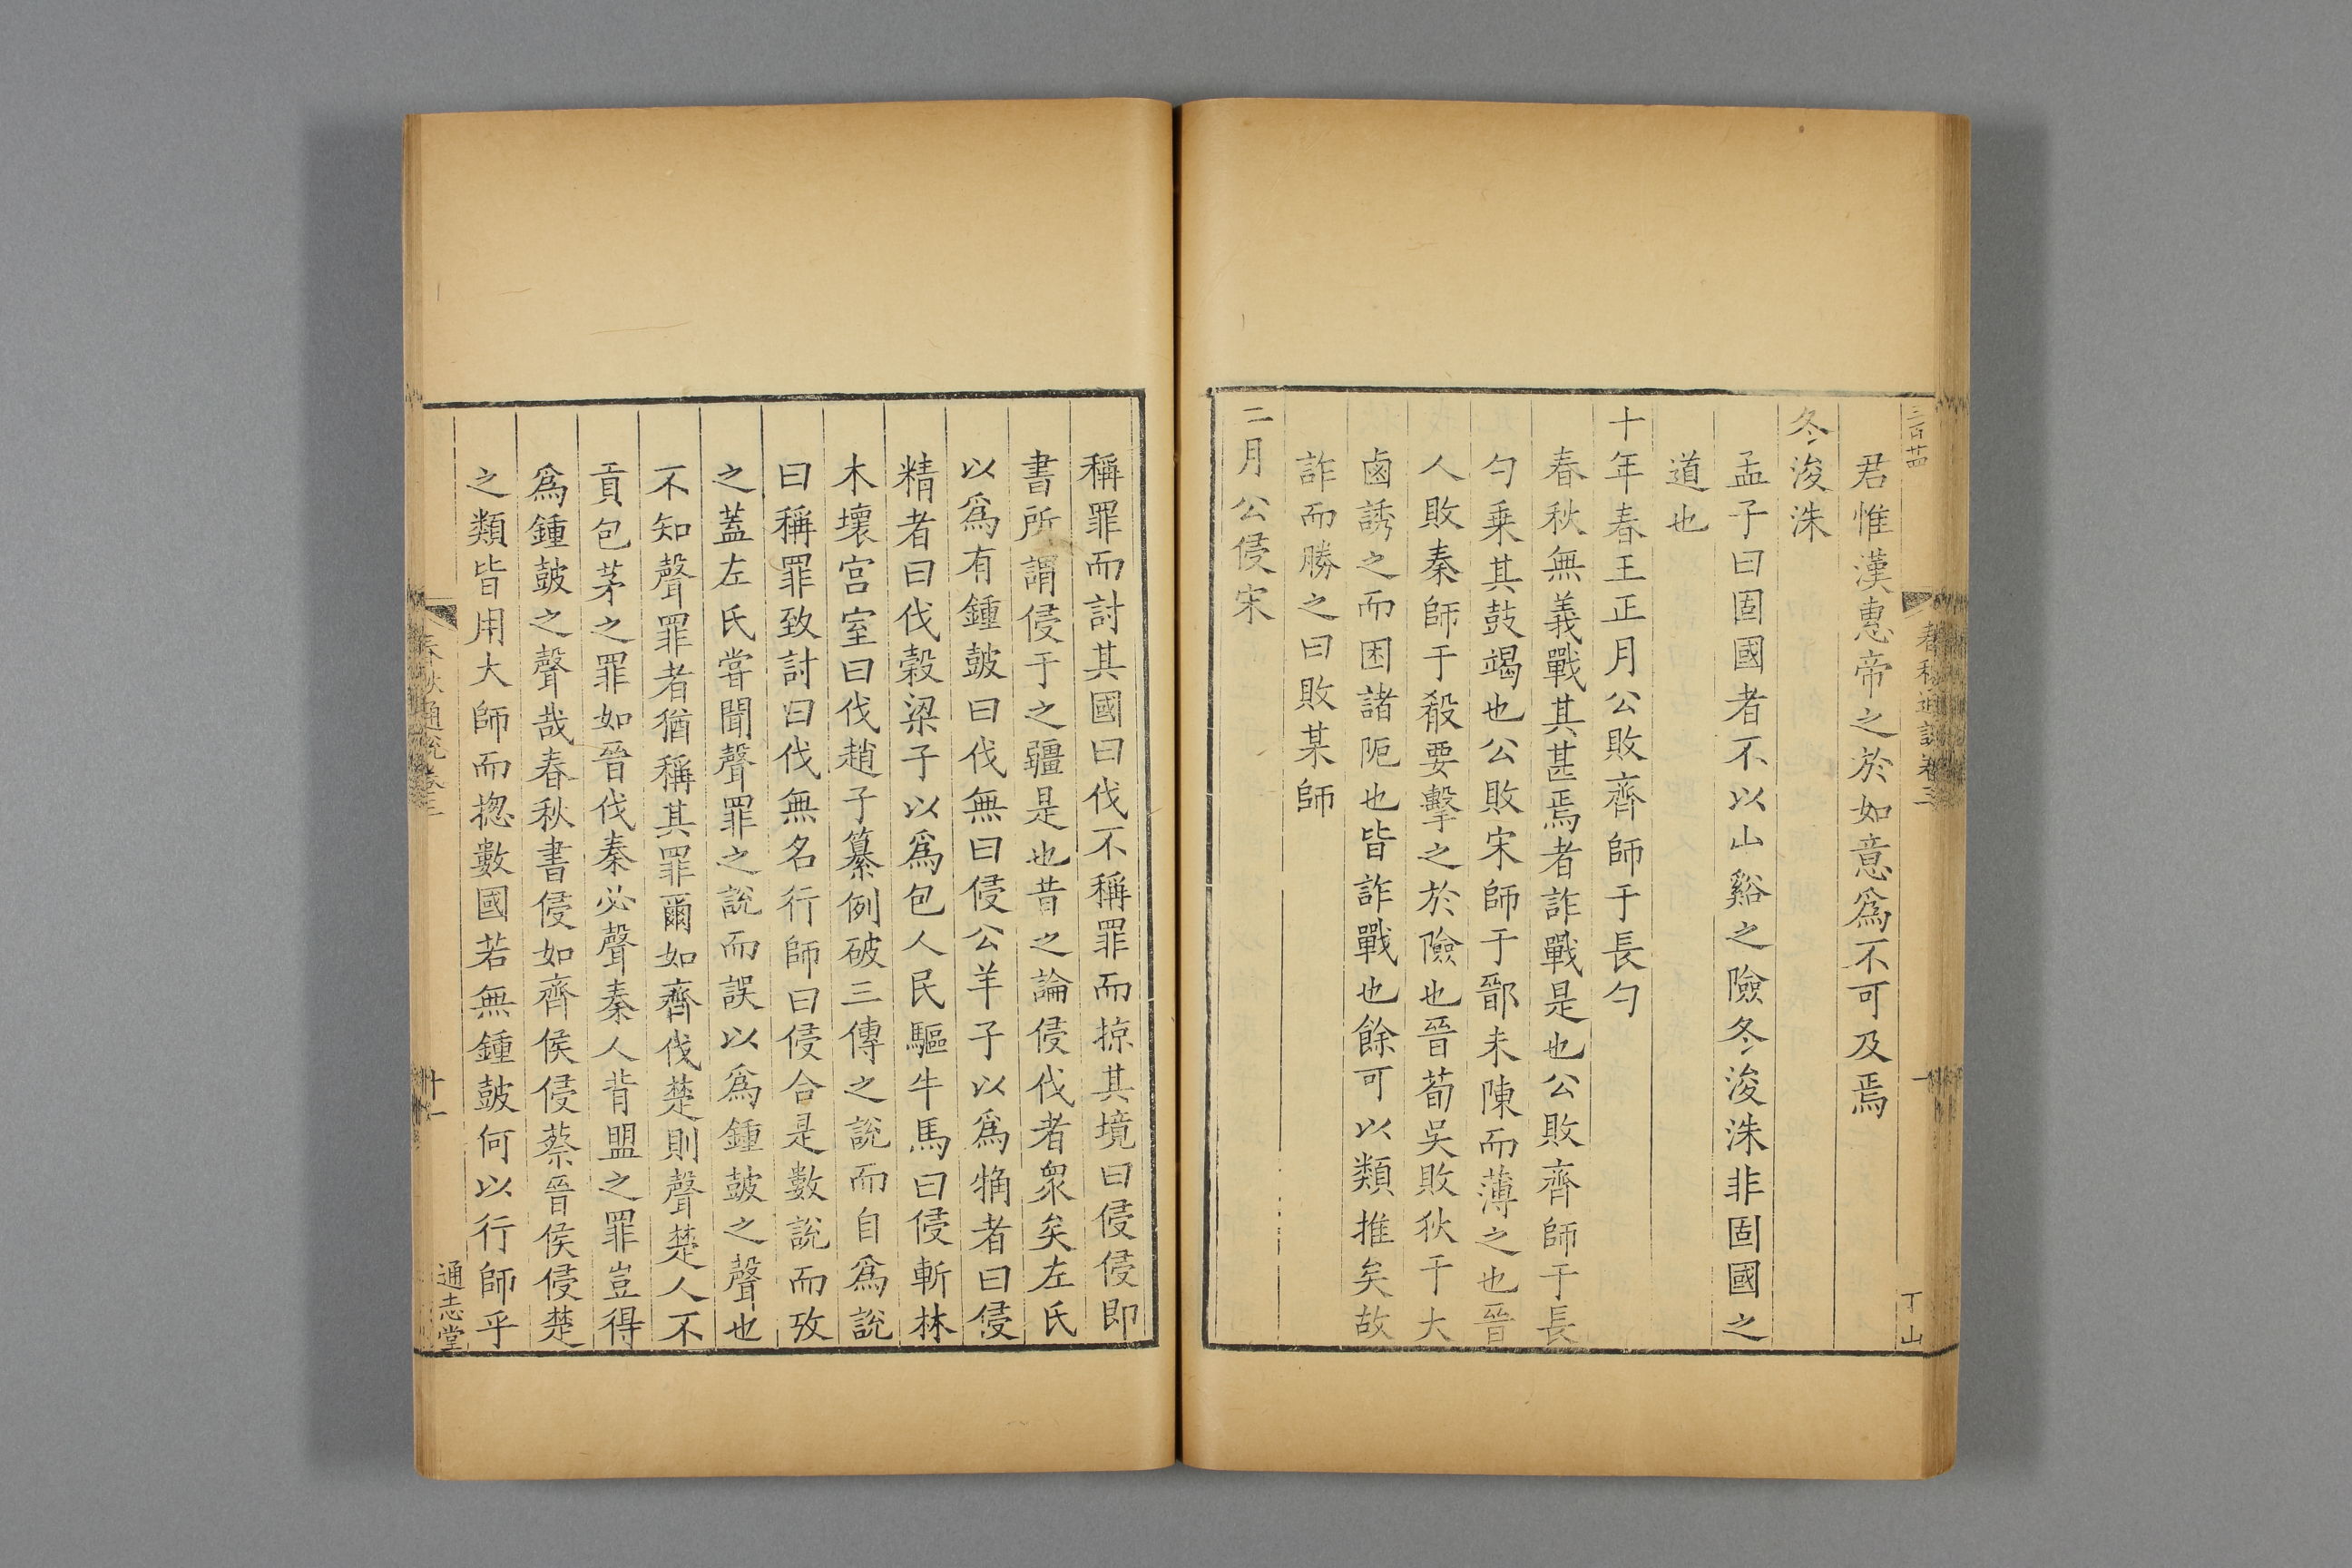 三百廿四
君惟漢惠帝之於如意爲不可及焉
冬浚洙
孟子曰固國者不以山谿之險冬浚洙非固國之
道也
十年春王正月公敗齊師于長勺
春秋無義戰其甚焉者詐戰是也公敗齊師于長
勺乗其鼓竭也公敗宋師于鄑未陳而薄之也晉
人敗秦師于殽要擊之於險也晉荀吳敗狄于大
鹵誘之而困諸阨也皆詐戰也餘可以類推矣故
詐而勝之曰敗某師
二月公侵宋
春秋通說卷三
丁山
稱罪而討其國曰伐不稱罪而掠其境曰侵侵即
書所謂侵于之疆是也昔之論侵伐者衆矣左氏
以爲有鍾皷曰伐無曰侵公羊子以爲觕者曰侵
精者曰伐榖梁子以爲包人民驅牛馬曰侵斬林
木壞宫室曰伐趙子纂例破三傳之說而自爲說
曰稱罪致討曰伐無名行師曰侵合是數說而攷
之蓋左氏甞聞聲罪之說而誤以爲鍾皷之聲也
不知聲罪者猶稱其罪爾如齊伐楚則聲楚人不
貢包茅之罪如晉伐秦必聲秦人背盟之罪豈得
爲鍾皷之聲哉春秋書侵如齊侯侵蔡晉侯侵楚
之類皆用大師而揔數國若無鍾皷何以行師乎
春秋通說卷三
十一
通志堂